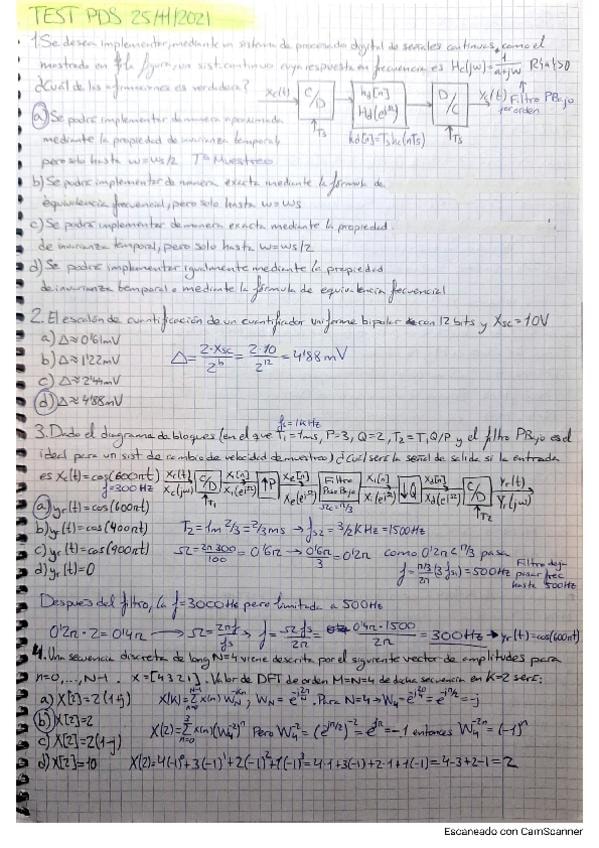 TEST PDS 25/11/2021
1. Se desea implementar, mediante un sistema de procesado digital de señales continuas, como el
mostrado en la figura, un sist. continuo cuya respuesta en frecuencia es Hc(jω) = 1/(a+jω) R{a}>0
¿Cuál de las afirmaciones es verdadera?
xc(t) C/D hd[n] Hd(e^jΩ) D/C yc(t) Filtro PBajo
1er orden
Ts hd[n]=Ts hc(nTs) Ts
a) Se podrá implementar de manera aproximada
mediante la propiedad de invarianza temporal,
pero solo hasta ω=ωs/2 Tª Muestreo
b) Se podrá implementar de manera exacta mediante la fórmula de
equivalencia frecuencial, pero solo hasta ω=ωs
c) Se podrá implementar de manera exacta mediante la propiedad
de invarianza temporal, pero solo hasta ω=ωs/2
d) Se podrá implementar igualmente mediante la propiedad
de invarianza temporal o mediante la fórmula de equivalencia frecuencial
2. El escalón de cuantificación de un cuantificador uniforme bipolar con 12 bits y Xsc=10V
a) Δ≈0'61mV
b) Δ≈1'22mV Δ = 2·Xsc/2^b = 2·10/2^12 = 4'88mV
c) Δ≈2'44mV
d) Δ≈4'88mV
fs=1KHz
3. Dado el diagrama de bloques (en el que T1=1ms, P=3, Q=2, T2=T1Q/P y el filtro PBajo es el
ideal para un sist de cambio de velocidad de muestreo) ¿Cuál será la señal de salida si la entrada
es xc(t)=cos(600πt)
f=300Hz
xc(t) Xc(jω) C/D x1[n] X1(e^jΩ) ↑P xe[n] Xe(e^jΩ) Filtro Paso Bajo xi[n] Xi(e^jΩ) ↓Q xd[n] Xd(e^jΩ) C/D yr(t) Yr(jω)
T1 T2
a) yr(t)=cos(600πt)
b) yr(t)=cos(400πt) T2=1m 2/3=2/3ms → fs2=3/2KHz=1500Hz
c) yr(t)=cos(900πt) Ω=2π300/100=0'6π → 0'6π/3=0'2π como 0'2π<π/3 pasa
d) yr(t)=0 f=π/3/2π (3fs1)=500Hz Filtro deja pasar frec hasta 500Hz
Después del filtro, la f=3000Hz pero limitada a 500Hz
0'2π·2=0'4π → Ω=2πf/fs → f=Ωfs/2π = 0'4π·1500/2π = 300Hz → yr(t)=cos(600πt)
4. Una secuencia discreta de long N=4 viene descrita por el siguiente vector de amplitudes para
n=0,...,N-1. x=[4 3 2 1]. Valor de DFT de orden M=N=4 de dicha secuencia en K=2 será:
a) X[2]=2(1+j) X[K]=Σ x(n) W_N^-kn, W_N=e^-j2π/N. Para N=4→W4=e^-j2π/4=e^-jπ/2=-j
b) X[2]=2
X(2)=Σ x(n)(W4^-2)^n Pero W4^-2=(e^jπ/2)^-2=e^jπ=-1 entonces W4^-2n=(-1)^n
c) X[2]=2(1-j)
d) X[2]=10 X(2)=4(-1)^0+3(-1)^1+2(-1)^2+1(-1)^3=4·1+3(-1)+2·1+1(-1)=4-3+2-1=2
Escaneado con CamScanner